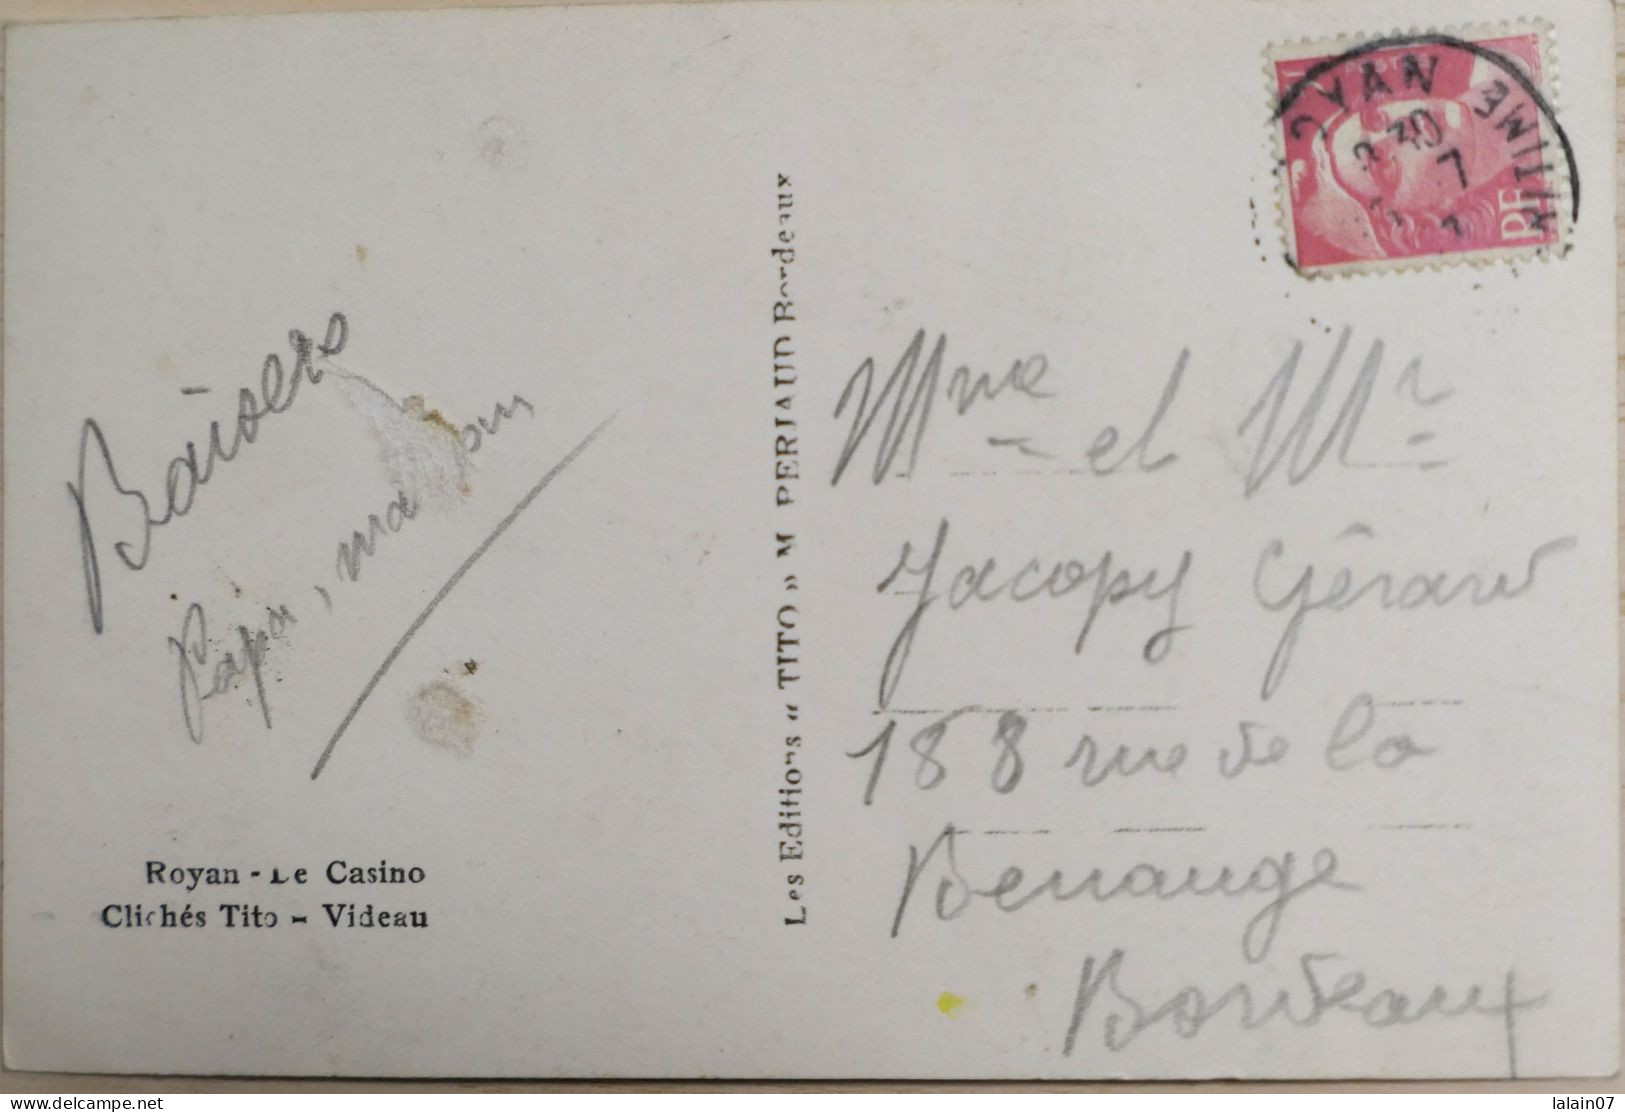 Baisers
Papa, maman
Royan - Le Casino
Clichés Tito - Videau
Les Editions « TITO » M PERJAUD Bordeaux
30
7
RF
Mme et Mr
Jacopy Gérard
188 rue de la
Benauge
Bordeaux
lalain07